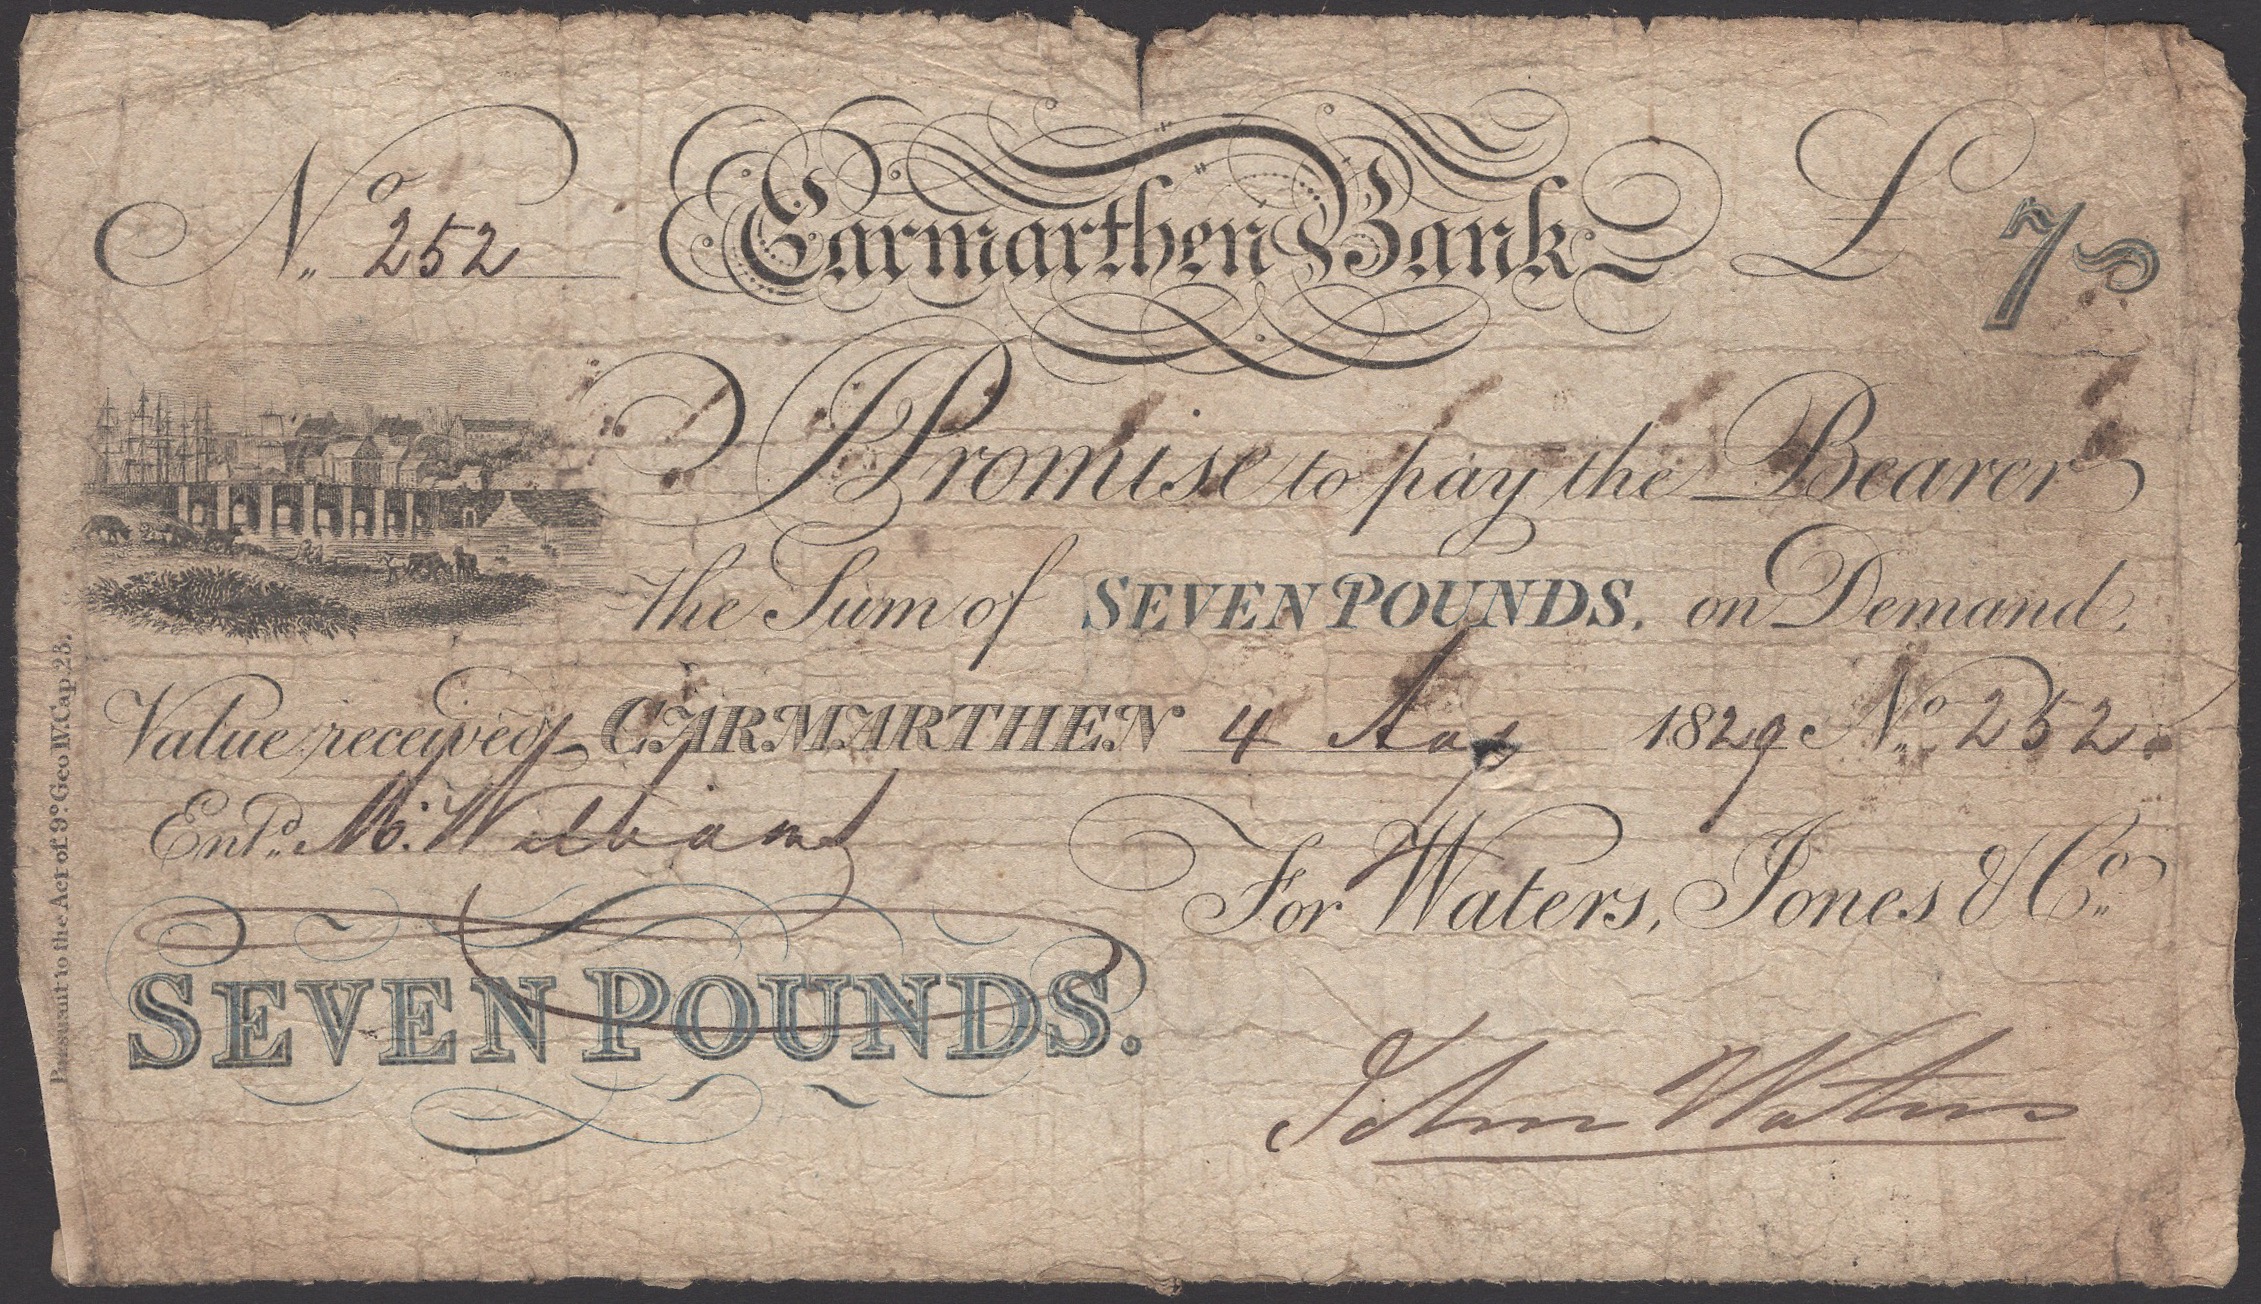 No. 252 Carmarthen Bank £ 7
I Promise to pay the Bearer
the Sum of SEVEN POUNDS. on Demand,
Value received CARMARTHEN 4 Aug 1829 No. 252
Entd. M. Williams
For Waters, Jones & Co.
SEVEN POUNDS.
John Waters
Pursuant to the Act of 9o. Geo IV. Cap. 23.